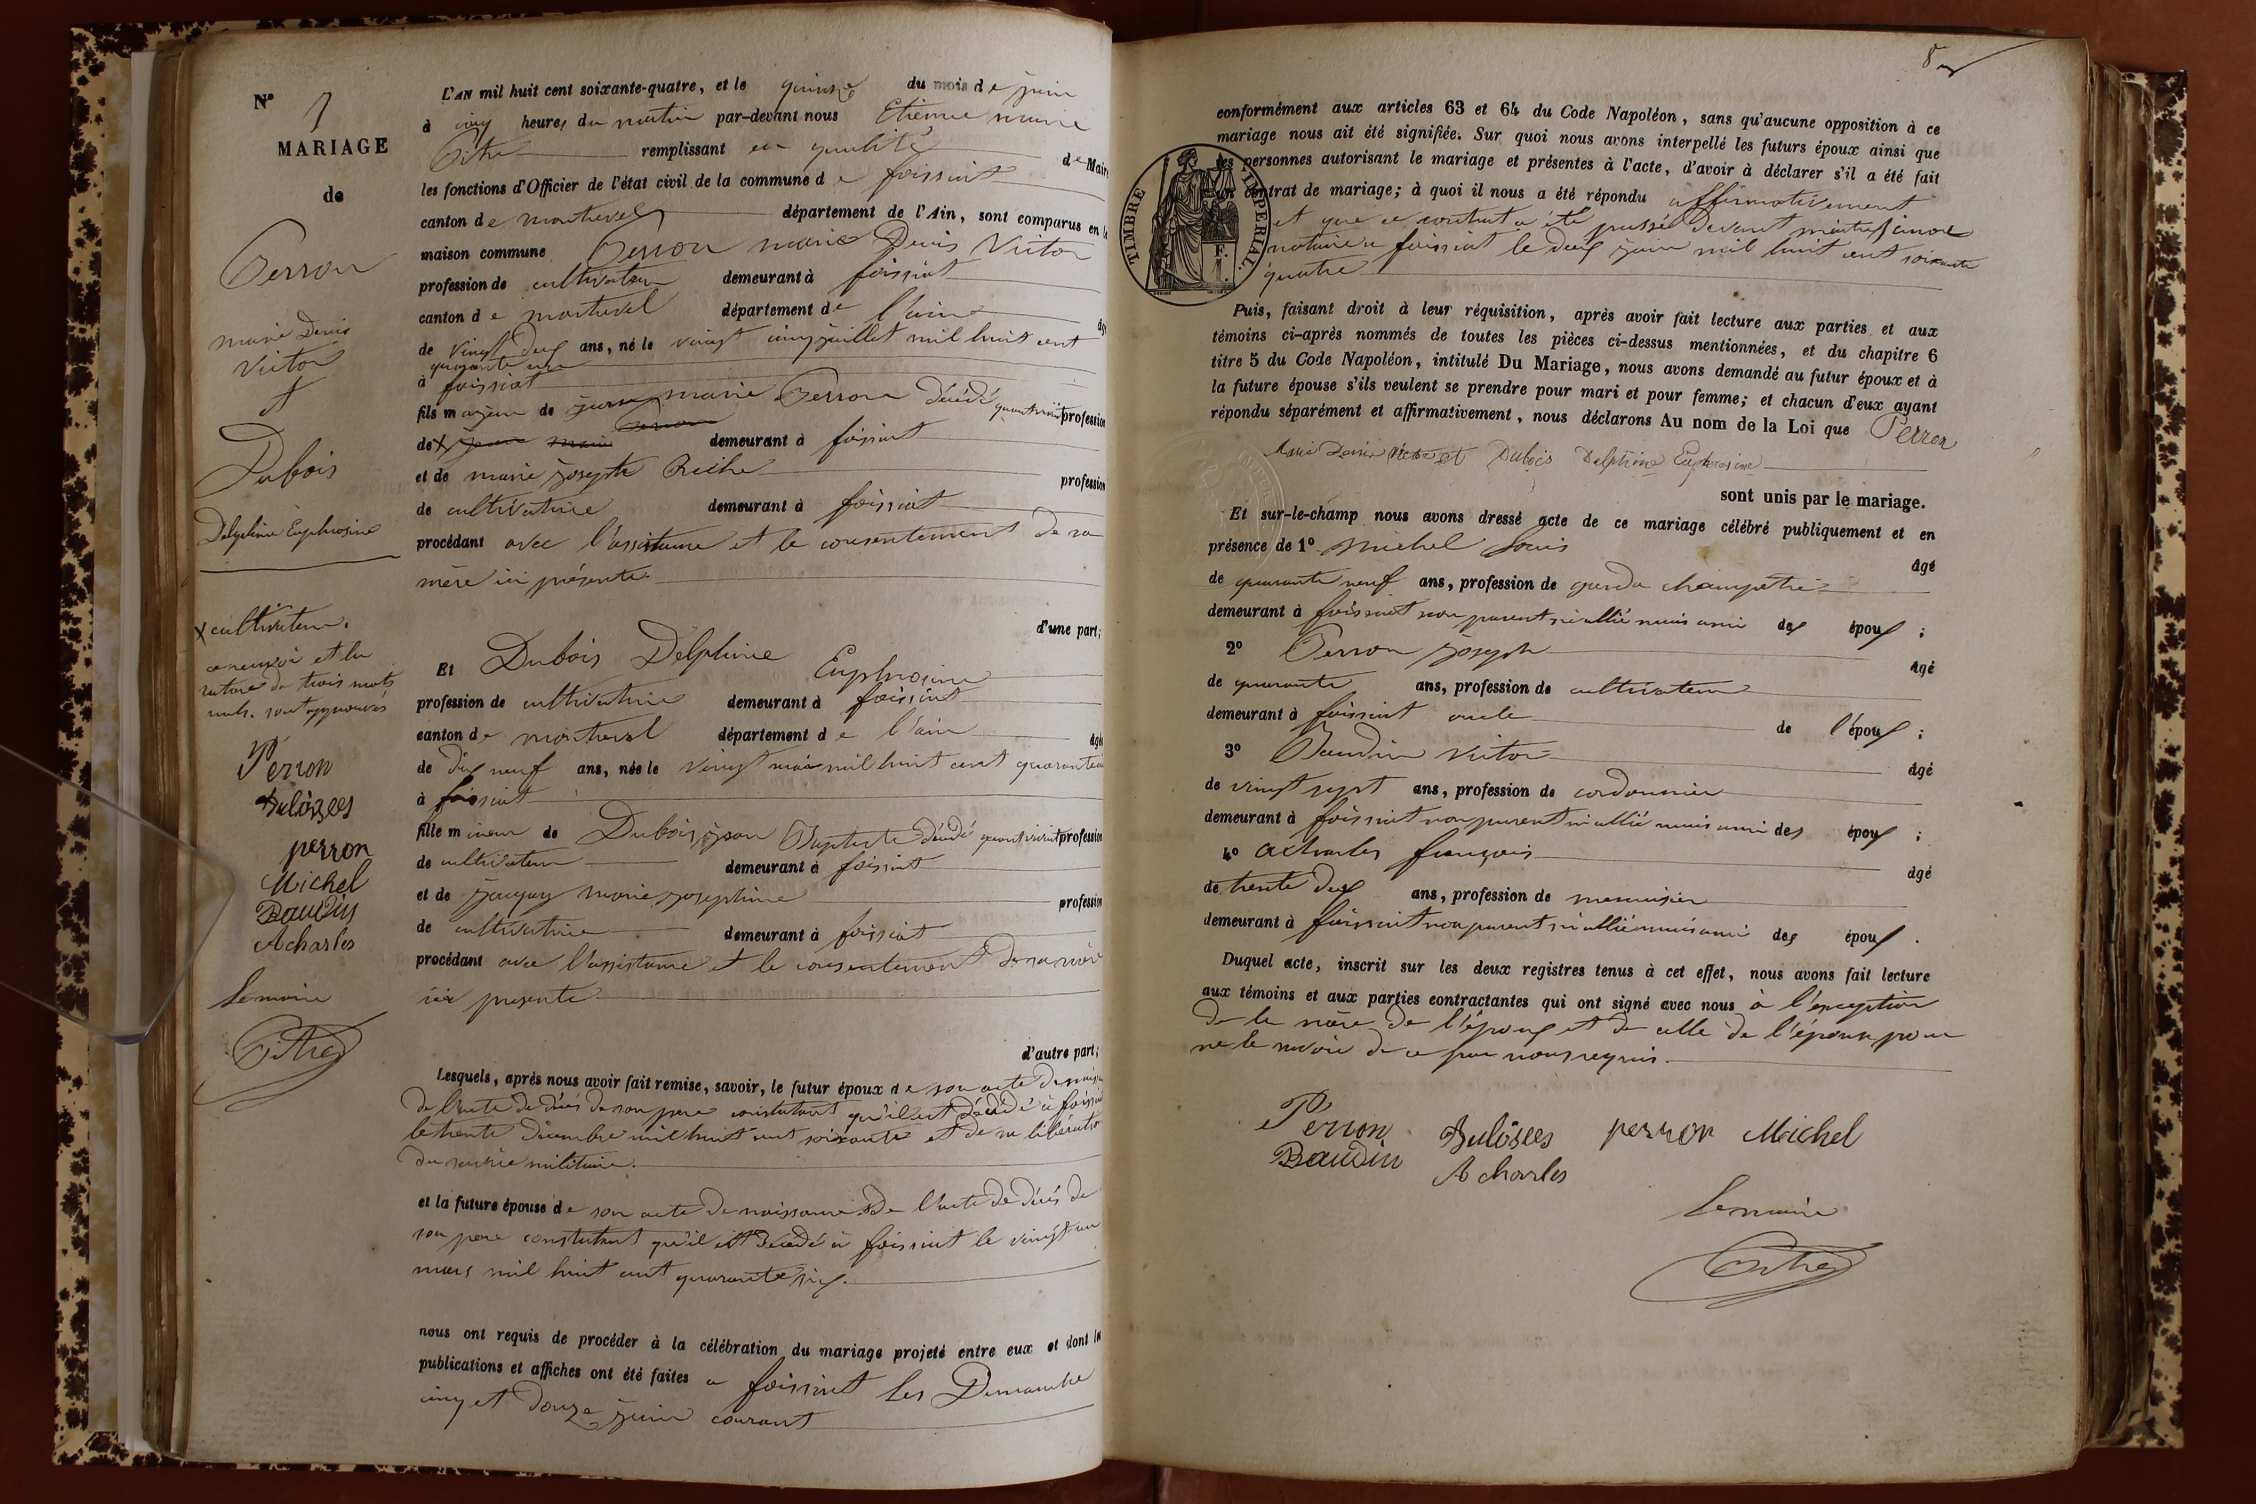 N° 9
MARIAGE
de
Perron
marie Denis
Victor
et
Dubois
Delphine Euphrosine
X cultivateur.
ce renvoi et la
rature de trois mots
nuls. sont approuvés
Perron
perron
Michel
Baudin
Acharles
Le maire
L'AN mil huit cent soixante-quatre, et le quinze du mois de juin
à cinq heures du matin par-devant nous Etienne marie
remplissant en qualité de Maire
les fonctions d'Officier de l'état civil de la commune de foissiat
canton de montrevel département de l'Ain, sont comparus en la
maison commune Perron marie Denis Victor
profession de cultivateur demeurant à foissiat
canton de montrevel département de l'ain âgé
de vingt deux ans, né le vingt cinq juillet mil huit cent
quarante un
à foissiat
fils majeur de marie Perron décédé quant vivait profession
de X demeurant à foissiat
et de marie joseph profession
de cultivatrice demeurant à foissiat
procédant avec l'assistance et le consentement de sa
mère ici présente
d'une part;
Et Dubois Delphine Euphrosine
profession de cultivatrice demeurant à foissiat
canton de montrevel département de l'ain âgée
de dix neuf ans, née le vingt mai mil huit cent quarante
à foissiat
fille mineur de Dubois jean Baptiste décédé quant vivait profession
de cultivateur demeurant à foissiat
et de marie josephine profession
de cultivatrice demeurant à foissiat
procédant avec l'assistance et le consentement de sa mère
ici presente
d'autre part;
Lesquels, après nous avoir fait remise, savoir, le futur époux de son acte de
de l'acte de décès de son pere constatant qu'il est décédé à foissiat
le trente décembre mil huit cent soixante et de sa libération
du service militaire.
et la future épouse de son acte de naissance de l'acte de décès de
son pere constatant qu'il est décédé à foissiat le vingt un
mars mil huit cent quarante six.
nous ont requis de procéder à la célébration du mariage projeté entre eux et dont les
publications et affiches ont été faites a foissiat les Dimanche
cinq et douze juin courant
conformément aux articles 63 et 64 du Code Napoléon, sans qu'aucune opposition à ce
mariage nous ait été signifiée. Sur quoi nous avons interpellé les futurs époux ainsi que
les personnes autorisant le mariage et présentes à l'acte, d'avoir à déclarer s'il a été fait
un contrat de mariage; à quoi il nous a été répondu affirmativement
et que ce contrat a été passé devant maitre
notaire a foissiat le deux juin mil huit cent soixante
quatre
TIMBRE IMPERIAL.
Puis, faisant droit à leur réquisition, après avoir fait lecture aux parties et aux
témoins ci-après nommés de toutes les pièces ci-dessus mentionnées, et du chapitre 6
titre 5 du Code Napoléon, intitulé Du Mariage, nous avons demandé au futur époux et à
la future épouse s'ils veulent se prendre pour mari et pour femme; et chacun d'eux ayant
répondu séparément et affirmativement, nous déclarons Au nom de la Loi que Perron
Marie Denis Victor et Dubois Delphine Euphrosine
sont unis par le mariage.
Et sur-le-champ nous avons dressé acte de ce mariage célébré publiquement et en
présence de 1° Michel Louis âgé
de quarante neuf ans, profession de garde champetre
demeurant à foissiat non parent ni allié mais ami des époux ;
2° Perron joseph âgé
de quarante ans, profession de cultivateur
demeurant à foissiat oncle de l'époux ;
3° Baudin victor âgé
de vingt sept ans, profession de cordonnier
demeurant à foissiat non parent ni allié mais ami des époux ;
4° Acharles françois âgé
de trente deux ans, profession de menuisier
demeurant à foissiat non parent ni allié mais ami des époux .
Duquel acte, inscrit sur les deux registres tenus à cet effet, nous avons fait lecture
aux témoins et aux parties contractantes qui ont signé avec nous à l'exception
de la mère de l'époux et de celle de l'épouse pour
ne le savoir de ce par nous requis.
Perron perron Michel
Baudin Acharles
Le maire